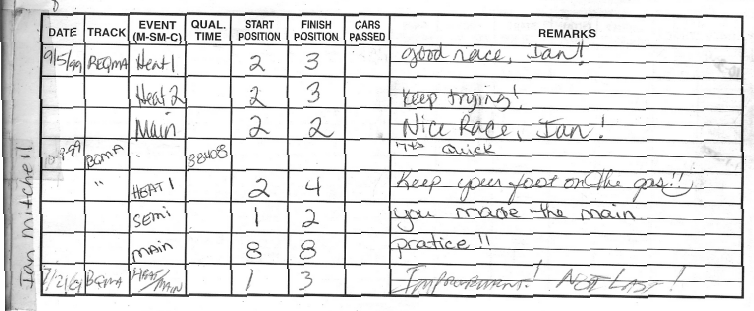 DATE TRACK EVENT (M-SM-C) QUAL. TIME START POSITION FINISH POSITION CARS PASSED REMARKS
9/5/99 REQMA Heat 1 2 3 good race, Ian!
Heat 2 2 3 Keep trying!
Main 2 2 Nice Race, Ian!
10-9-99 BQMA 38408 7th Quick
" HEAT 1 2 4 Keep your foot on the gas!!
SEMI 1 2 you made the main
MAIN 8 8 pratice!!
BQMA HEAT/MAIN 1 3 Improvement! NOT LAST!
Ian Mitchell